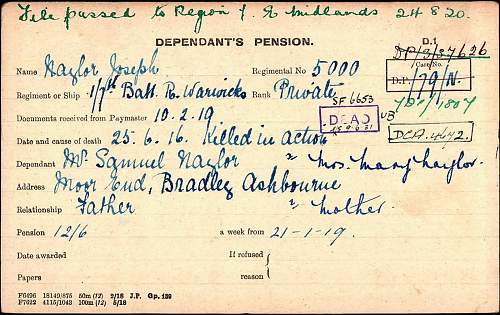 File passed to Region 7. E. Midlands 24.8.20.
DEPENDANT'S PENSION.
D.1
DP/3/37626
Name Naylor Joseph Regimental No 5000
Case No.
D.P. /79/N.
Regiment or Ship 1/7th Batt. R. Warwicks Rank Private
SF 6653
Documents received from Paymaster 10.2.19
DEAD
UB
DCA.
Date and cause of death 25.6.16. Killed in action
Dependant Mr. Samuel Naylor & Mrs. Mary Naylor.
Address Moor End, Bradley Ashbourne
Relationship Father & mother.
Pension 12/6 a week from 21-1-19.
Date awarded If refused
Papers reason
F6496 18149/875 50m (12) 2/18 J.P. Gp. 139
F7622 4115/1043 100m (12) 5/18